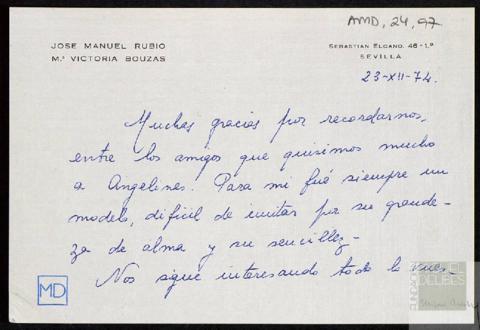 AMD, 24, 97
JOSE MANUEL RUBIO
Mª VICTORIA BOUZAS
SEBASTIAN ELCANO, 46-1.º
SEVILLA
23-XII-74.
Muchas gracias por recordarnos,
entre los amigos que quisimos mucho
a Angelines. Para mi fué siempre un
modelo, dificil de imitar por su grande-
za de alma y su sencillez-
Nos sigue interesando todo lo vues-
MD
FUNDACIÓN
MIGUEL
DELIBES